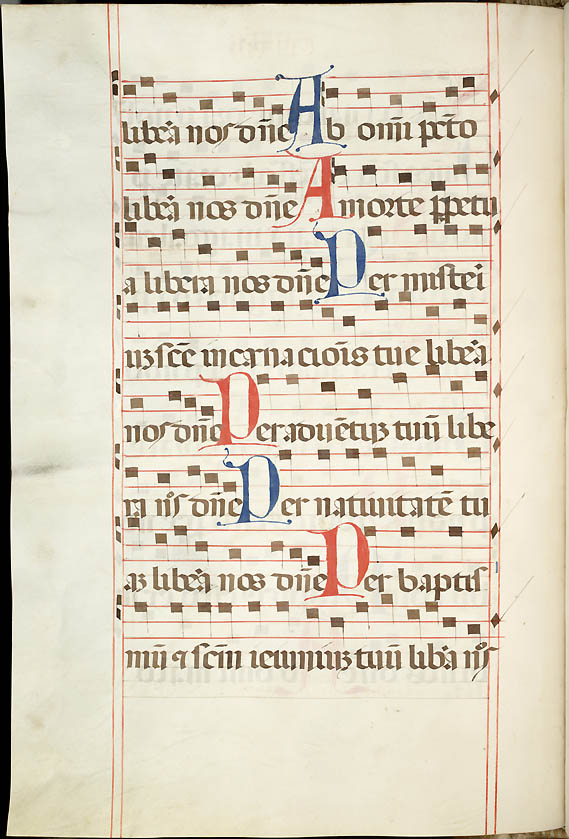 libera nos dn̄e Ab om̄i pctō
libera nos dn̄e A morte ꝑpetu
a libera nos dn̄e Per misteri
uꝫ scē incarnacioīs tue libera
nos dn̄e Per aduētuꝫ tuū libe
ra nos dn̄e Per natiuitatē tu
aꝫ libera nos dn̄e Per baptis
mū ⁊ scm̄ ieiuniuꝫ tuū libera nos